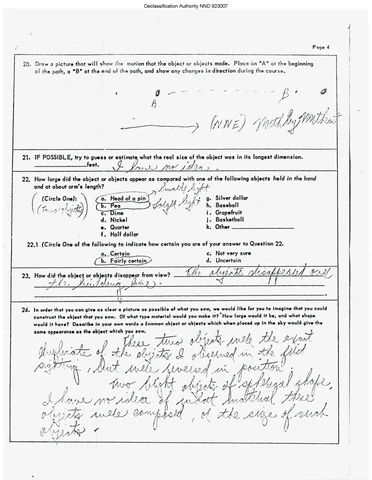 Declassification Authority NND 923007
Page 4
20. Draw a picture that will show the motion that the object or objects made. Place an "A" at the beginning
of the path, a "B" at the end of the path, and show any changes in direction during the course.
A B
(NNE) North by Northeast
21. IF POSSIBLE, try to guess or estimate what the real size of the object was in its longest dimension.
feet. I have no idea.
22. How large did the object or objects appear as compared with one of the following objects held in the hand
and at about arm's length?
(Circle One):
(Two objects)
a. Head of a pin smaller light
b. Pea larger light
c. Dime
d. Nickel
e. Quarter
f. Half dollar
g. Silver dollar
h. Baseball
i. Grapefruit
j. Basketball
k. Other
22.1 (Circle One of the following to indicate how certain you are of your answer to Question 22.
a. Certain
b. Fairly certain
c. Not very sure
d. Uncertain
23. How did the object or objects disappear from view? The objects disappeared over
the building line.
24. In order that you can give as clear a picture as possible of what you saw, we would like for you to imagine that you could
construct the object that you saw. Of what type material would you make it? How large would it be, and what shape
would it have? Describe in your own words a common object or objects which when placed up in the sky would give the
same appearance as the object which you saw.
These two objects were the exact
duplicate of the objects I observed in the first
sighting, but were reversed in position.
Two bright objects of spherical shape.
I have no idea of what material these
objects were composed, of the size of such
objects.